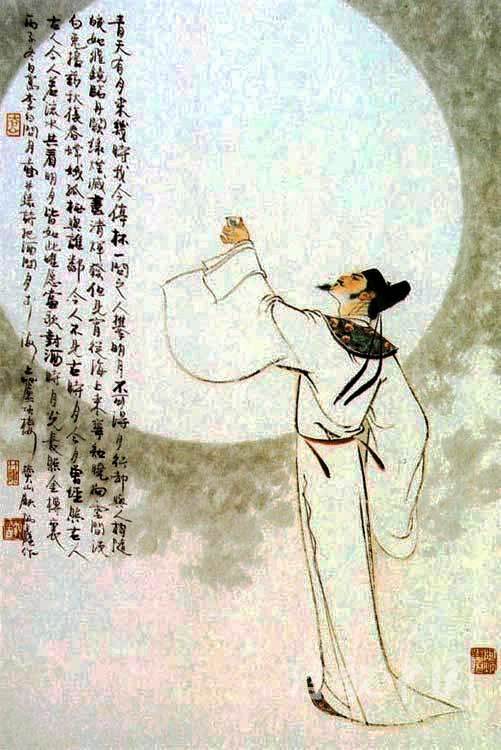 青天有月來幾時我今停杯一問之人攀明月不可得月行却與人相隨
皎如飛鏡臨丹闕綠煙滅盡清輝發但見宵從海上來寧知曉向雲間沒
白兔搗藥秋復春嫦娥孤栖與誰鄰今人不見古時月今月曾經照古人
古人今人若流水共看明月皆如此唯願當歌對酒時月光長照金樽裏
丙子冬日寫李白問月圖并錄詩把酒問月於海上